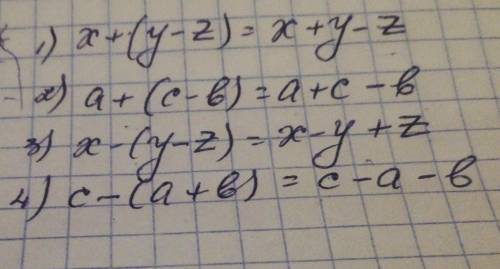 1) x+(y-z)=x+y-z
2) a+(c-в)=a+c-в
3) x-(y-z)=x-y+z
4) c-(a+в)=c-a-в